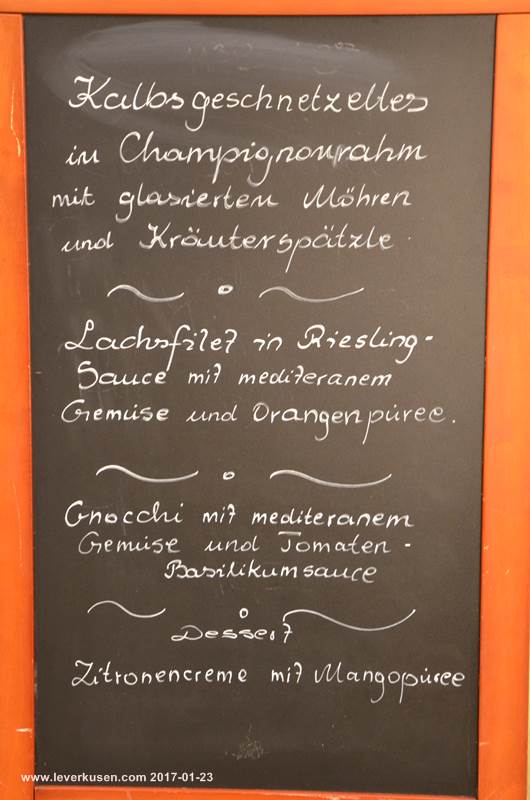 Kalbsgeschnetzeltes
in Champignonrahm
mit glasierten Möhren
und Kräuterspätzle.
Lachsfilet in Riesling-
Sauce mit mediteranem
Gemüse und Orangenpüree.
Gnocchi mit mediteranem
Gemüse und Tomaten-
Basilikumsauce
Dessert
Zitronencreme mit Mangopüree
www.leverkusen.com 2017-01-23